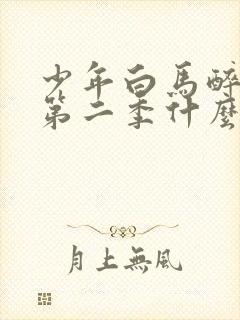 少年白馬醉
第二季什麼
月上無風